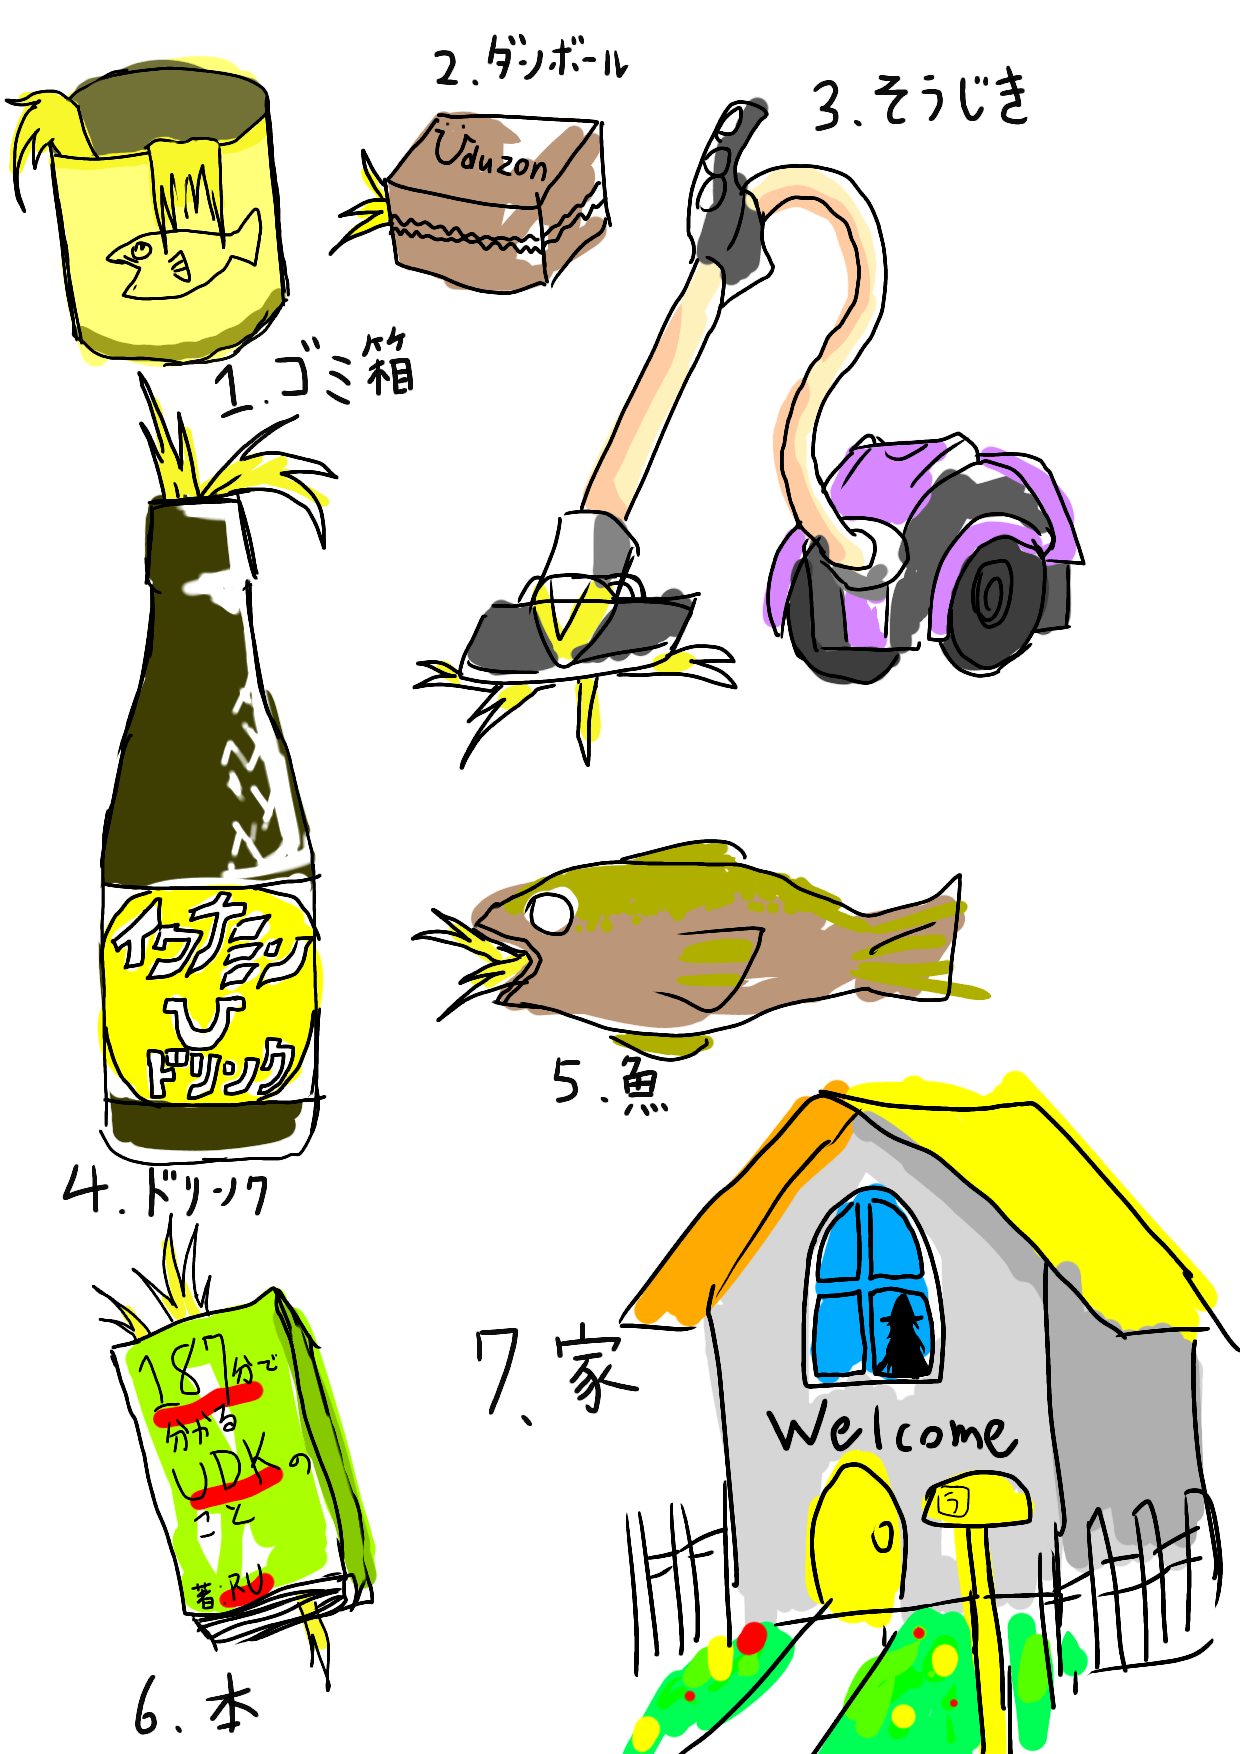 2.ダンボール
Üduzon
3.そうじき
1.ゴミ箱
イウナミン
U
ドリンク
4.ドリンク
5.魚
187分で
分かる
UDKの
こと
著:RU
6.本
7.家
Welcome
う